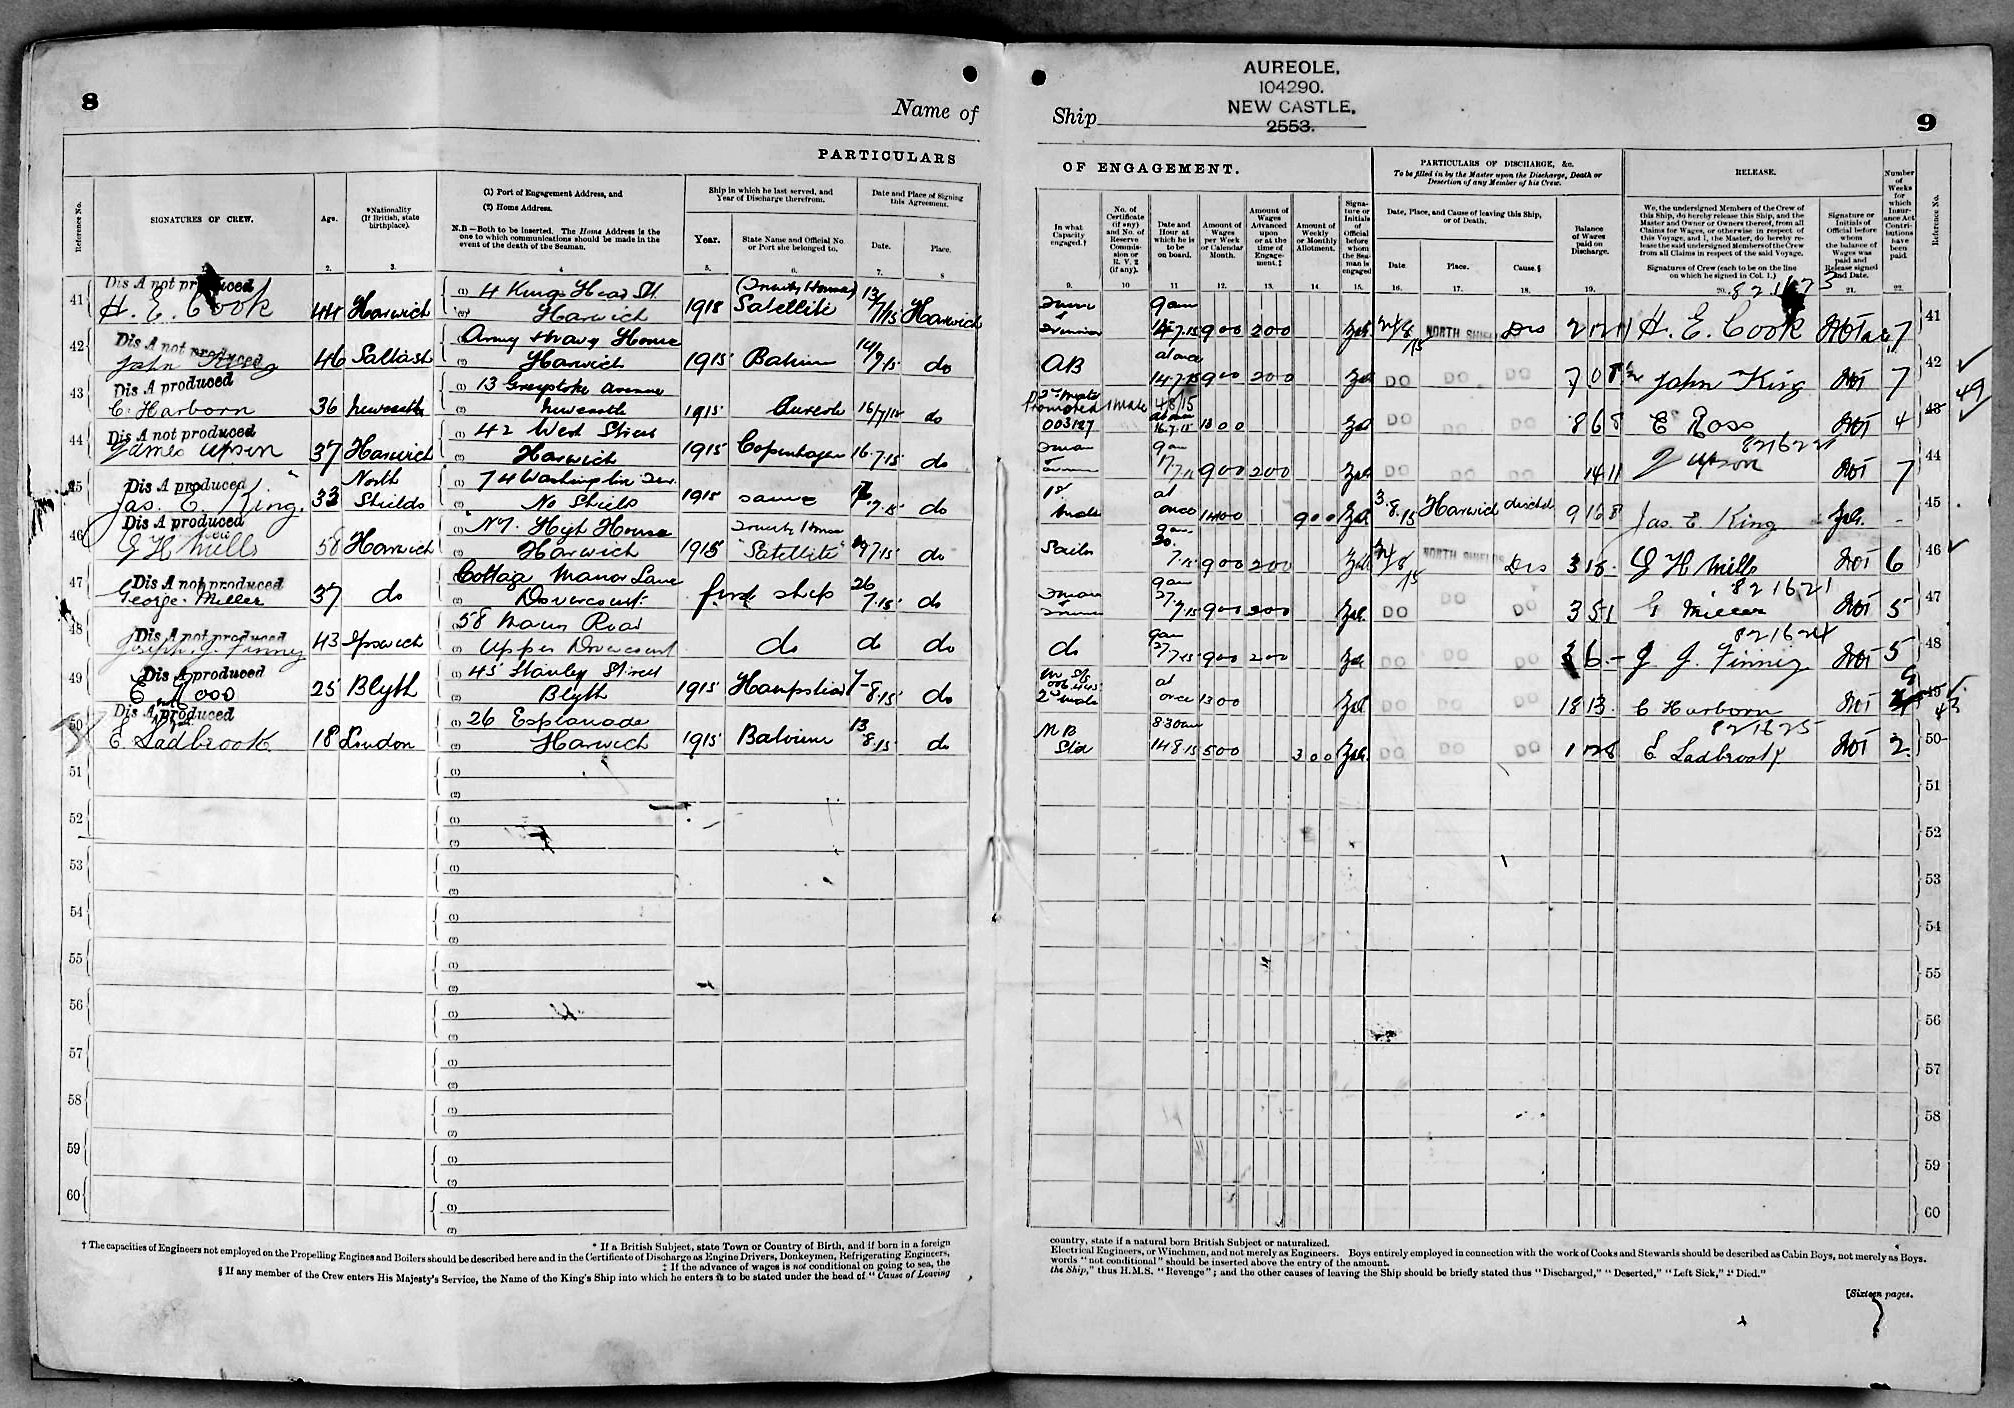 8
Name of
PARTICULARS
Reference No.
SIGNATURES OF CREW.
Age.
*Nationality
(If British, state
birthplace).
(1) Port of Engagement Address, and
(2) Home Address.
N.B—Both to be inserted. The Home Address is the
one to which communications should be made in the
event of the death of the Seaman.
Ship in which he last served, and
Year of Discharge therefrom.
Year.
State Name and Official No.
or Port she belonged to.
Date and Place of Signing
this Agreement.
Date.
Place.
2. 3. 4 5. 6. 7. 8
41 Dis A not produced
H. E. Cook 44 Harwich (1) 4 Kings Head St. Harwich 1915 (Trinity House) Satellite 13/7/15 Harwich
42 Dis A not produced
John King 46 Saltash Army & Navy House Harwich 1915 14/7/15 do
43 Dis A produced
E. Harborn 36 Newcastle (1) 13 Greystoke Avenue (2) Newcastle 1915 Aureole 16/7/15 do
44 Dis A not produced
James Upson 37 Harwich (1) 42 West Street (2) Harwich 1915 Copenhagen 16.7.15 do
45 Dis A produced
Jas. E. King. 33 North Shields (1) 74 Washington Ter. (2) No Shields 1915 same 7.15 do
46 Dis A produced
G H Mills 58 Harwich (1) No 7. High House (2) Harwich 1915 Trinity House "Satellite" 7.15 do
47 Dis A not produced
George Miller 37 do Cottage Manor Lane (2) Dovercourt. first ship 26/7.15 do
48 Dis A not produced
Joseph J. Finney 43 Ipswich 58 Main Road (2) Upper Dovercourt do do do
49 Dis A produced
E Ross 25 Blyth (1) 45 Stanley Street (2) Blyth 1915 7-8.15 do
50 Dis A produced
E Ladbrook 18 London (1) 26 Esplanade (2) Harwich 1915 13/8.15 do
51 (1)
(2)
52 (1)
(2)
53 (1)
(2)
54 (1)
(2)
55 (1)
(2)
56 (1)
(2)
57 (1)
(2)
58 (1)
(2)
59 (1)
(2)
60 (1)
(2)
* If a British Subject, state Town or Country of Birth, and if born in a foreign
† The capacities of Engineers not employed on the Propelling Engines and Boilers should be described here and in the Certificate of Discharge as Engine Drivers, Donkeymen, Refrigerating Engineers,
‡ If the advance of wages is not conditional on going to sea, the
§ If any member of the Crew enters His Majesty's Service, the Name of the King's Ship into which he enters is to be stated under the head of "Cause of Leaving
AUREOLE,
104290.
NEW CASTLE,
2553.
Ship
9
OF ENGAGEMENT.
In what
Capacity
engaged.†
No. of
Certificate
(if any)
and No. of
Reserve
Commis-
sion or
R. V. 2
(if any).
Date and
Hour at
which he is
to be
on board.
Amount of
Wages
per Week
or Calendar
Month.
Amount of
Wages
Advanced
upon
or at the
time of
Engage-
ment.‡
Amount of
Weekly
or Monthly
Allotment.
Signa-
ture or
Initials
of
Official
before
whom
the Sea-
man is
engaged
PARTICULARS OF DISCHARGE, &c.
To be filled in by the Master upon the Discharge, Death or
Desertion of any Member of his Crew.
Date, Place, and Cause of leaving this Ship,
or of Death.
Date.
Place.
Cause.§
Balance
of Wages
paid on
Discharge.
RELEASE.
We, the undersigned Members of the Crew of
this Ship, do hereby release this Ship, and the
Master and Owner or Owners thereof, from all
Claims for Wages, or otherwise in respect of
this Voyage, and I, the Master, do hereby re-
lease the said undersigned Members of the Crew
from all Claims in respect of the said Voyage.
Signatures of Crew (each to be on the line
on which he signed in Col. 1.)
Signature or
Initials of
Official before
whom
the balance of
Wages was
paid and
Release signed
and Date.
Number
of
Weeks
for
which
Insur-
ance Act
Contri-
butions
have
been
paid.
Reference No.
9. 10 11. 12. 13. 14 15. 16. 17. 18. 19. 20. 21. 22.
821623
9am 9 0 0 2 0 0 NORTH SHIELDS Dis H. E. Cook 7 41
AB at once 14.7.15 9 0 0 2 0 0 DO DO DO John King 7 42
2nd mate Promoted 1 Mate 4/8/15
003127 16.7.15 DO DO DO 8 6 8 E Ross 4 43 49
821622
9am 9 0 0 2 0 0 DO DO DO J Upson 7 44
1st Mate at once 14 0 0 9 0 0 3.8.15 Harwich 9 16 8 Jas E King - 45
Sailor 9am 7.15 9 0 0 2 0 0 NORTH SHIELDS Dis G H Mills 6 46
821621
9am 27.7.15 9 0 0 2 0 0 DO DO DO 3 5 1 G Miller 5 47
821624
do 9am 27.7.15 9 0 0 2 0 0 DO DO DO J J Finney 5 48
2nd mate at once 13 0 0 DO DO DO 18 13 E Harborn 49 43
821625
8.30am 14.8.15 5 0 0 3 0 0 DO DO DO E Ladbrook 2 50
51
52
53
54
55
56
57
58
59
60
country, state if a natural born British Subject or naturalized.
Electrical Engineers, or Winchmen, and not merely as Engineers. Boys entirely employed in connection with the work of Cooks and Stewards should be described as Cabin Boys, not merely as Boys.
words "not conditional" should be inserted above the entry of the amount.
the Ship," thus H.M.S. "Revenge"; and the other causes of leaving the Ship should be briefly stated thus "Discharged," "Deserted," "Left Sick," "Died."
[Sixteen pages.